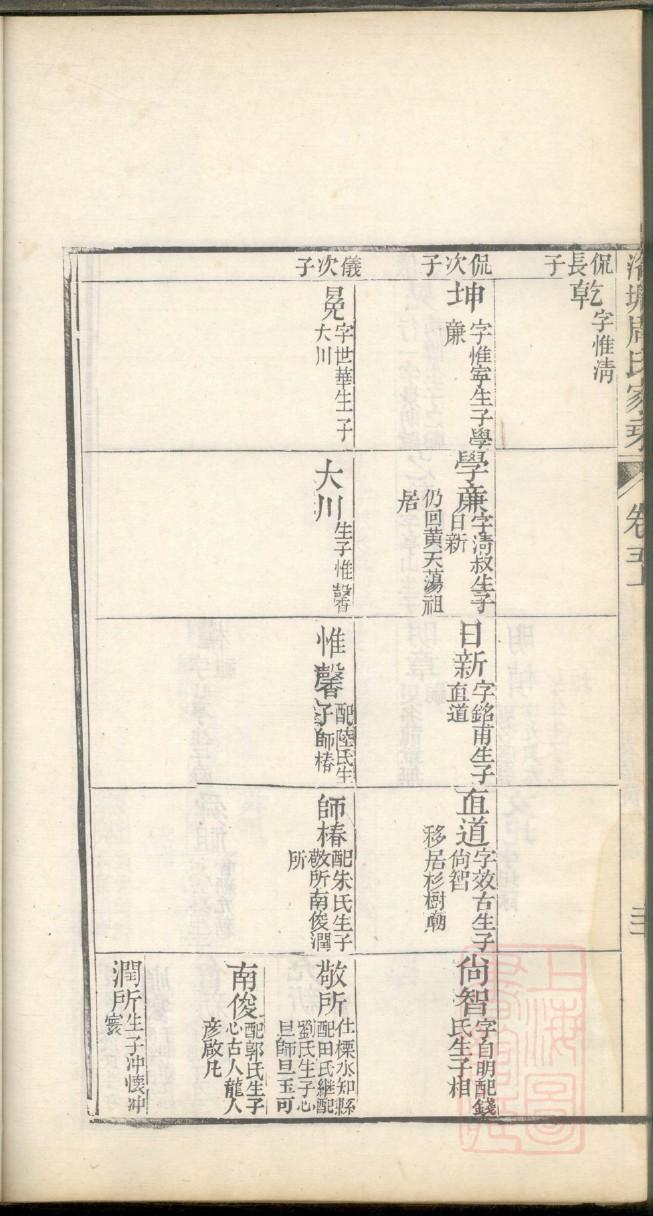 周氏家乘
卷五
侃長子
乾
字惟清
侃次子
坤
字惟寧生子學
廉
學廉
字淸叔生子
日新
仍回黃天蕩祖
居
日新
字銘甫生子
直道
直道
字效古生子
尙智
移居杉樹廟
尙智
字自明配錢
氏生子相
儀次子
晃
字世華生子
大川
大川
生子惟馨
惟馨
配陸氏生
子師椿
師椿
配朱氏生子
敬所南俊潤
所
敬所
仕栗水知縣
配田氏繼配
劉氏生子心
旦師旦玉可
南俊
配郭氏生子
心古人龍人
彦啟凡
潤所
生子冲懷冲
寰
上海圖書館藏